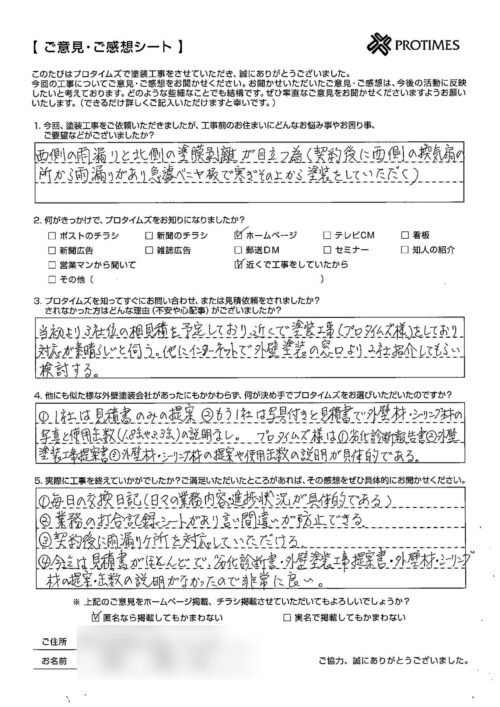 【 ご意見・ご感想シート 】
PROTIMES
このたびはプロタイムズで塗装工事をさせていただき、誠にありがとうございました。
今回の工事についてご意見・ご感想をお聞かせください。お聞かせいただいたご意見・ご感想は、今後の活動に反映
したいと考えております。どのような些細なことでも結構です。ぜひ率直なご意見をお聞かせくださいますようお願い
いたします。（できるだけ詳しくご記入いただけますと幸いです。）
1. 今回、塗装工事をご依頼いただきましたが、工事前のお住まいにどんなお悩み事やお困り事、
ご要望などがございましたか?
西側の雨漏りと北側の塗膜剥離が目立つ為(契約後に西側の換気扇の
所から雨漏りがあり急遽ベニヤ板で塞ぎその上から塗装をしていただく)
2. 何がきっかけで、プロタイムズをお知りになりましたか?
□ ポストのチラシ □ 新聞のチラシ ☑ ホームページ □ テレビCM □ 看板
□ 新聞広告 □ 雑誌広告 □ 郵送DM □ セミナー □ 知人の紹介
□ 営業マンから聞いて ☑ 近くで工事をしていたから
□ その他 ( )
3. プロタイムズを知ってすぐにお問い合わせ、または見積依頼をされましたか?
されなかった方はどんな理由(不安や心配事)がございましたか?
当初より3社位の相見積を予定しており、近くで塗装工事(プロタイムズ様)をしており
対応が素晴らしいと伺う。他にインターネットで外壁塗装の窓口より2社紹介してもらい
検討する。
4. 他にも似た様な外壁塗装会社があったにもかかわらず、何が決め手でプロタイムズをお選びいただいたのですか?
①1社は見積書のみの提案 ②もう1社は写真付きと見積書で外壁材・シーリング材の
写真と使用缶数(1.8缶や2.3缶)の説明なし。 プロタイムズ様は①劣化診断報告書②外壁
塗装工事提案書③外壁材・シーリング材の提案や使用缶数の説明が具体的である。
5. 実際に工事を終えていかがでしたか?ご満足いただいたところがあれば、その感想をぜひ具体的にお聞かせください。
①毎日の交換日記(日々の業務内容・進捗状況が具体的である)
②業務の打合記録シートがあり言い間違いが防止できる。
③契約後に雨漏りケ所を対応していただける。
④他社は見積書がほとんどで、劣化診断書・外壁塗装工事提案書・外壁材・シーリング
材の提案・缶数の説明がなかったので非常に良い。
※ 上記のご意見をホームページ掲載、チラシ掲載させていただいてもよろしいでしょうか?
☑ 匿名なら掲載してもかまわない □ 実名で掲載してもかまわない
ご住所
お名前
ご協力、誠にありがとうございました。